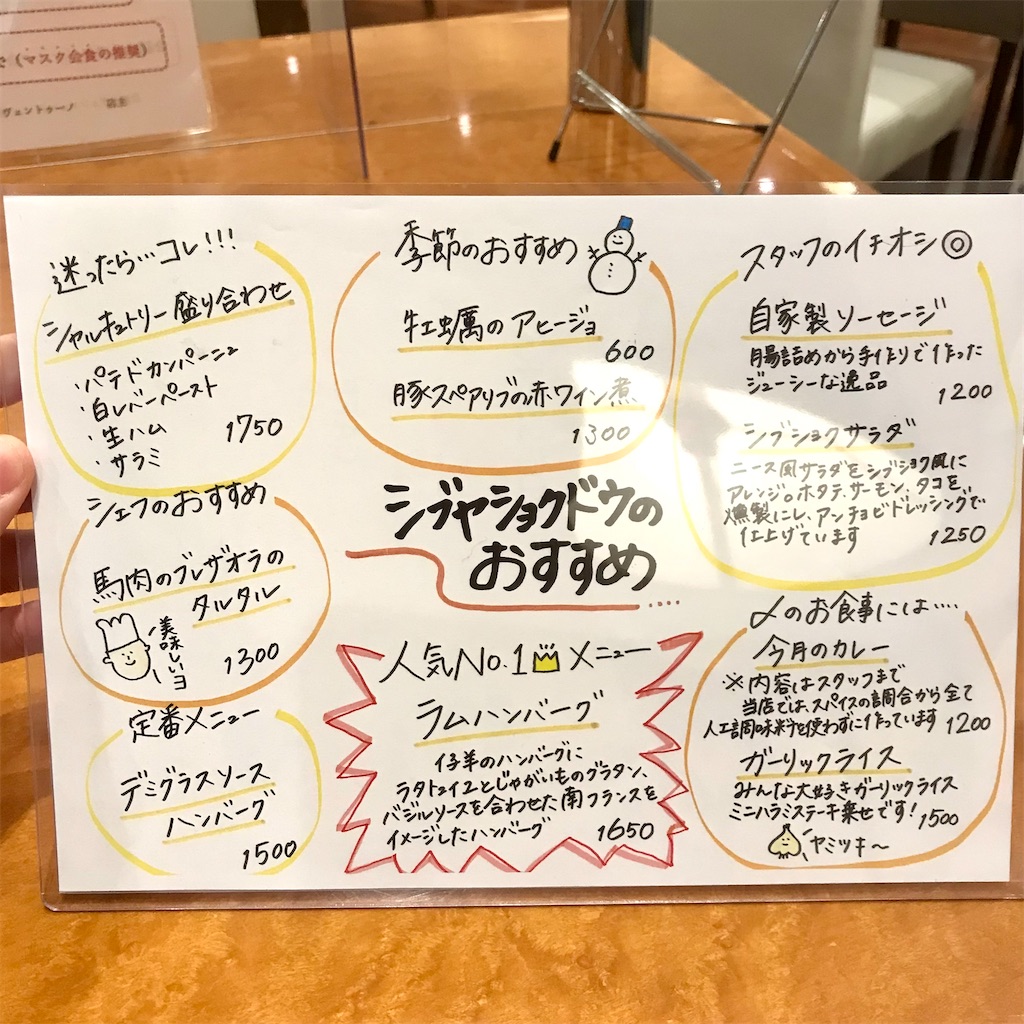 (マスク会食の推奨)
ヴェントゥーノ 店主
迷ったら…コレ!!!
シャルキュトリー盛り合わせ
・パテドカンパーニュ
・白レバーペースト
・生ハム
・サラミ
1750
シェフのおすすめ
馬肉のブレザオラの
タルタル
美味しいヨ
1300
定番メニュー
デミグラスソース
ハンバーグ
1500
季節のおすすめ
牡蠣のアヒージョ
600
豚スペアリブの赤ワイン煮
1300
シブヤショクドウの
おすすめ
人気No.1メニュー
ラムハンバーグ
仔羊のハンバーグに
ラタトゥイユとじゃがいものグラタン、
バジルソースを合わせた南フランスを
イメージしたハンバーグ
1650
スタッフのイチオシ◎
自家製ソーセージ
腸詰めから手作りで作った
ジューシーな逸品
1200
シブショクサラダ
ニース風サラダをシブショク風に
アレンジ。ホタテ、サーモン、タコを、
燻製にし、アンチョビドレッシングで
仕上げています
1250
〆のお食事には….
今月のカレー
※内容はスタッフまで
当店では、スパイスの調合から全て
人工調味料を使わずに作っています
1200
ガーリックライス
みんな大好きガーリックライス
ミニハラミステーキ乗せです!
1500
ヤミツキ〜